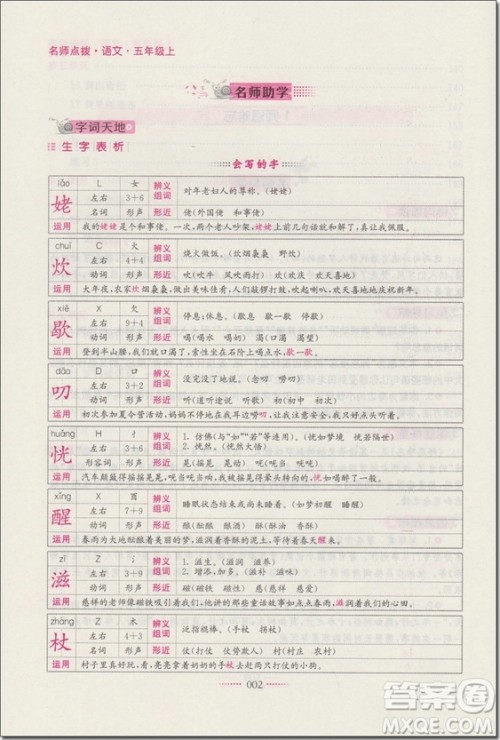 名师点拨·语文·五年级上
名师助学
字词天地
生字表析
会写的字
lǎo L 女 辨义组词 对年老妇人的尊称。(姥姥)
姥 左右 3+6
名词 形声 形近 佬(外国佬 和事佬)
运用 我的姥姥是个和事佬。一次,两个老人吵架,姥姥上前几句话就把我佩服。
chuī C 火 辨义组词 烧火做饭。(炊烟袅袅 野炊)
炊 左右 4+4
动词 形声 形近 吹(吹牛 风吹雨打) 欢(欢庆 欢天喜地)
运用 大年夜,农家炊烟袅袅,做出美味佳肴,人们敲锣打鼓,吹起喇叭,欢天喜地庆祝新年。
xiē X 欠 辨义组词 停息;休息。(歇息 歇歇 间歇)
歇 左右 9+4
动词 形声 形近 喝(喝水 喝奶) 渴(口渴 渴望)
运用 登到半山腰,我们口渴了,索性坐在石阶上喝点水,歇一歇。
dāo D 口 辨义组词 没完没了地说。(念叨 唠叨)
叨 左右 3+2
动词 形声 形近 听(道听途说 听力) 叶(树叶 中叶)
运用 初次参加夏令营活动,妈妈不停地在我耳边唠叨,我只好点头听着。
huǎng H 忄 辨义组词 1. 仿佛(与“如”“若”等连用)。(恍如梦境 恍若隔世)
恍 左右 3+6 2. 恍然。(恍然大悟)
形容词 形声 形近 晃(摇晃 晃动) 咣(咣当)
运用 汽车颠簸得摇摇晃晃,咣当咣当响,我恍如喝醉了一般。
xǐng X 酉 辨义组词 睡眠状态结束或尚未入睡。(如梦初醒 醒悟)
醒 左右 7+9
动词 形声 形近 酣(酣睡 酣酒) 酒(酒水 喜酒)
运用 春雨为大地酝酿着美丽的梦,滋润着香香的泥土,万物都在春雨中醒来。
zī Z 氵 辨义组词 1. 滋生。(滋润 滋养)
滋 左右 3+9 2. 增添,加多。(滋补 滋味)
动词 形声 形近 磁(磁铁 磁性) 慈(慈爱 慈祥)
运用 慈祥的老师像磁铁吸引着我们,他讲的那些话就如点点春雨,滋润着我们的心田。
zhàng Z 木 辨义组词 泛指棍棒。(手杖 拐杖)
杖 左右 4+3
名词 形声 形近 仗(打仗 仗势欺人) 丈(丈夫)
运用 村子里真好玩,亮亮拿着奶奶的手杖去追两只打仗的小狗。
002
答案圈
MXQE.COM